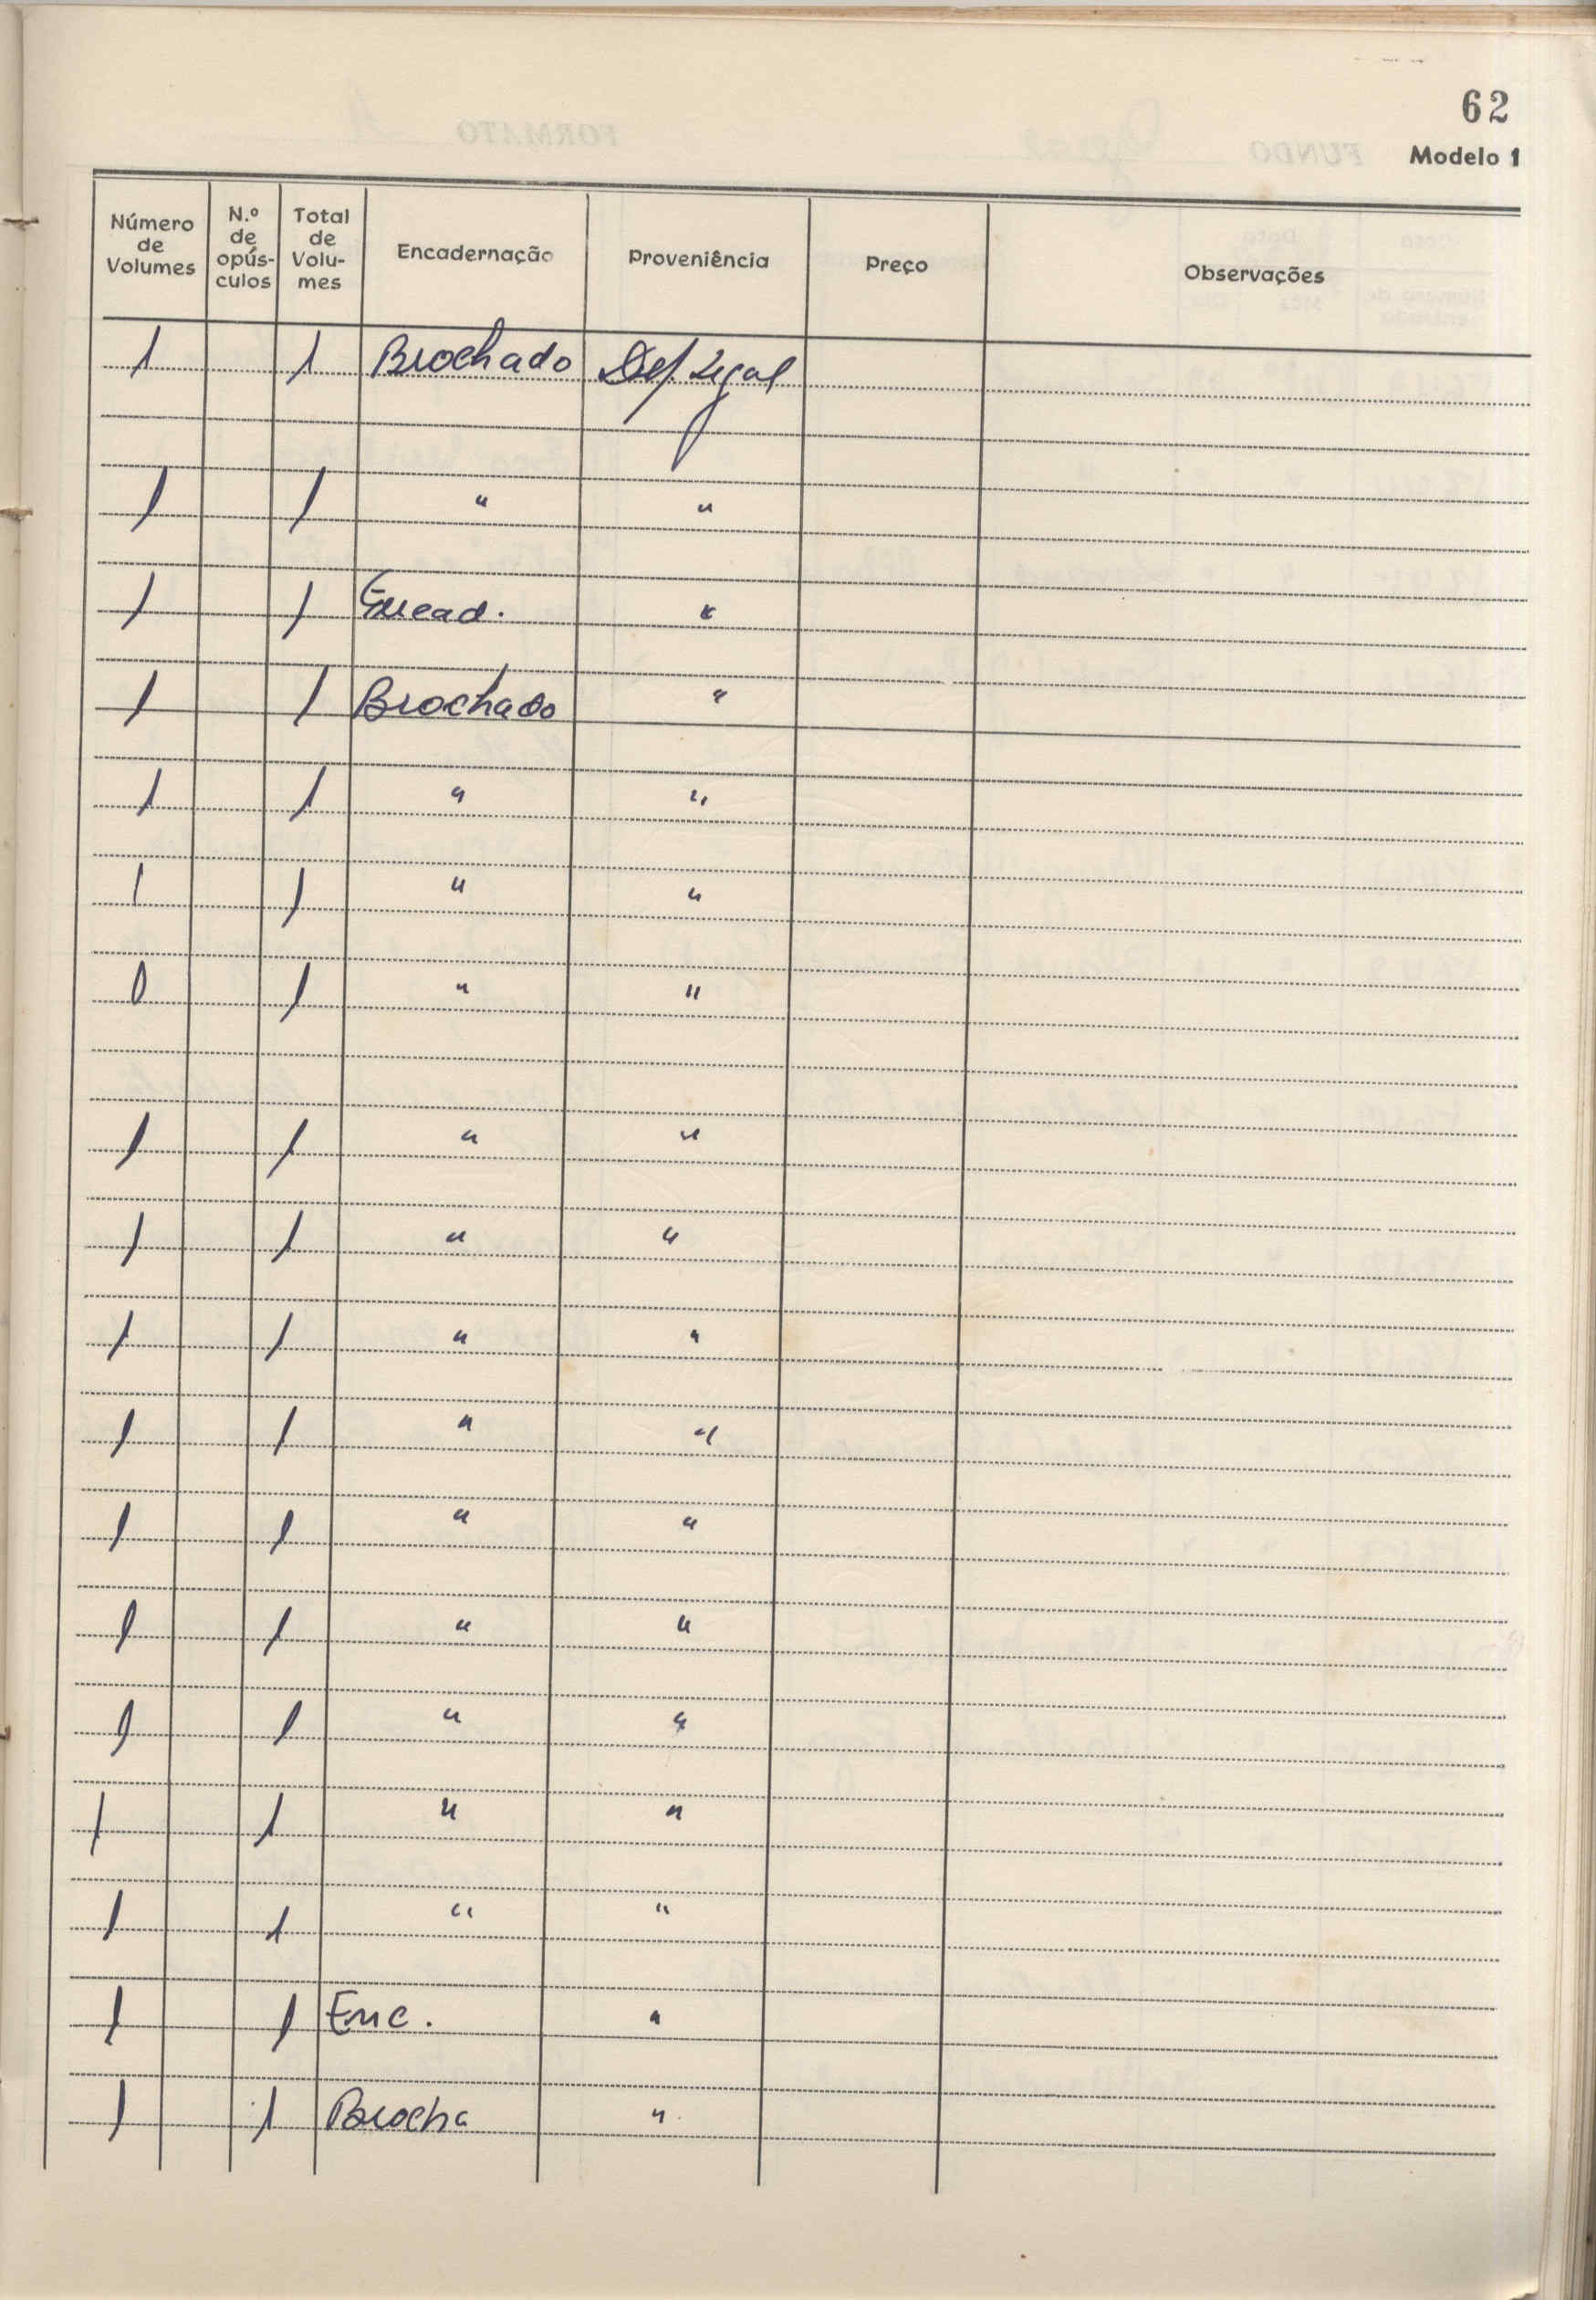 62
Modelo 1
Número de Volumes | N.º de opús-culos | Total de Volu-mes | Encadernação | Proveniência | Preço | Observações
1 | | 1 | Brochado | Dep. Legal
1 | | 1 | " | "
1 | | 1 | Encad. | "
1 | | 1 | Brochado | "
1 | | 1 | " | "
1 | | 1 | " | "
1 | | 1 | " | "
1 | | 1 | " | "
1 | | 1 | " | "
1 | | 1 | " | "
1 | | 1 | " | "
1 | | 1 | " | "
1 | | 1 | " | "
1 | | 1 | " | "
1 | | 1 | " | "
1 | | 1 | " | "
1 | | 1 | Enc. | "
1 | | 1 | Brocha | "